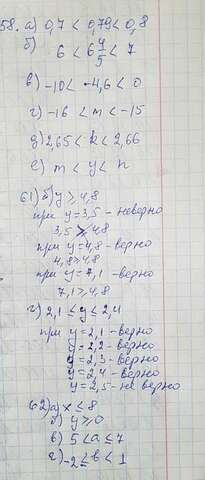 58. а) 0,7 < 0,79 < 0,8
б)
6 < 6 4/5 < 7
в) -10 < -4,6 < 0
г) -16 < m < -15
д) 2,65 < k < 2,66
е) m < y < n
61) б) y ⩾ 4,8
при y=3,5 - неверно
3,5 ⩾ 4,8
при y=4,8 - верно
4,8 ⩾ 4,8
при y=7,1 - верно
7,1 ⩾ 4,8
г) 2,1 ≤ y < 2,4
при y=2,1 - верно
y=2,2 - верно
y=2,3 - верно
y=2,4 - верно
y=2,5 - не верно
62) а) x ≤ 8
б) y ⩾ 0
в) 5 < a ≤ 7
г) -2 ≤ b < 1